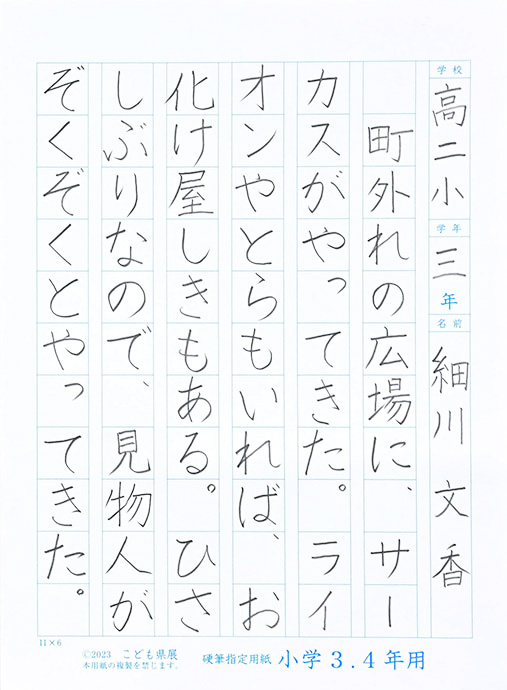 学校 高二小 学年 三年 名前 細川 文香
町外れの広場に、サー
カスがやってきた。ライ
オンやとらもいれば、お
化け屋しきもある。ひさ
しぶりなので、見物人が
ぞくぞくとやってきた。
11×6
©2023 こども県展
本用紙の複製を禁じます。
硬筆指定用紙 小学3.4年用